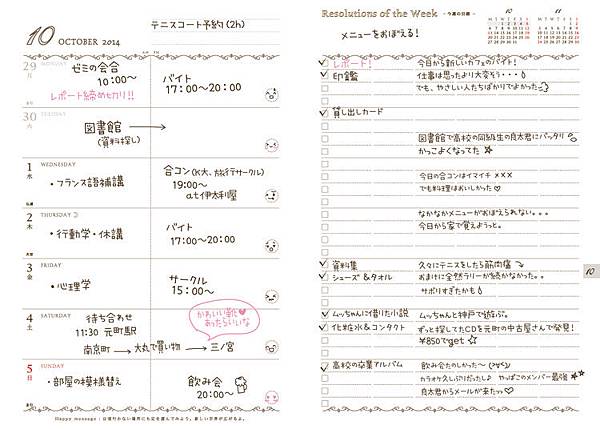 10 OCTOBER 2014
テニスコート予約(2h)
29
月
MONDAY
ゼミの会合
10:00〜
レポート締め切り!!
バイト
17:00〜20:00
30
火
TUESDAY
図書館
(資料探し)
1
水
WEDNESDAY
・フランス語補講
合コン(K大、旅行サークル)
19:00〜
at伊太利屋
2
木
THURSDAY
・行動学・休講
バイト
17:00〜20:00
3
金
FRIDAY
・心理学
サークル
15:00〜
4
土
SATURDAY
待ち合わせ
11:30 元町駅
南京町 → 大丸で買物 → 三ノ宮
かわいい靴♥
あったらいいな
5
日
SUNDAY
・部屋の模様替え
飲み会
20:00〜
Resolutions of the Week - 今週の目標 -
メニューをおぼえる!
10
11
レポート! 今日から新しいカフェのバイト!
印鑑 仕事は思ったより大変そう・・・
でも、やさしい人たちばかりでよかった
貸し出しカード
図書館で高校の同級生の良太君にバッタリ
かっこよくなってた☆
今日の合コンはイマイチ×××
でも料理はおいしかった♡
なかなかメニューがおぼえられない。。。
今日から家で覚えようっと。
資料集 久々にテニスをしたら筋肉痛
シューズ&タオル おまけに全然ラリーが続かなかった。。
サボりすぎたかも
10
ムッちゃんに借りた小説 ムッちゃんと神戸で遊ぶ。
化粧水&コンタクト ずっと探してたCDを元町の中古屋さんで発見!
¥850でget☆
高校の卒業アルバム 飲み会たのしかった〜(≧∀≦)
カラオケ久しぶりだったし♪ やっぱこのメンバー最強☆
良太君からメールが来たっ♡